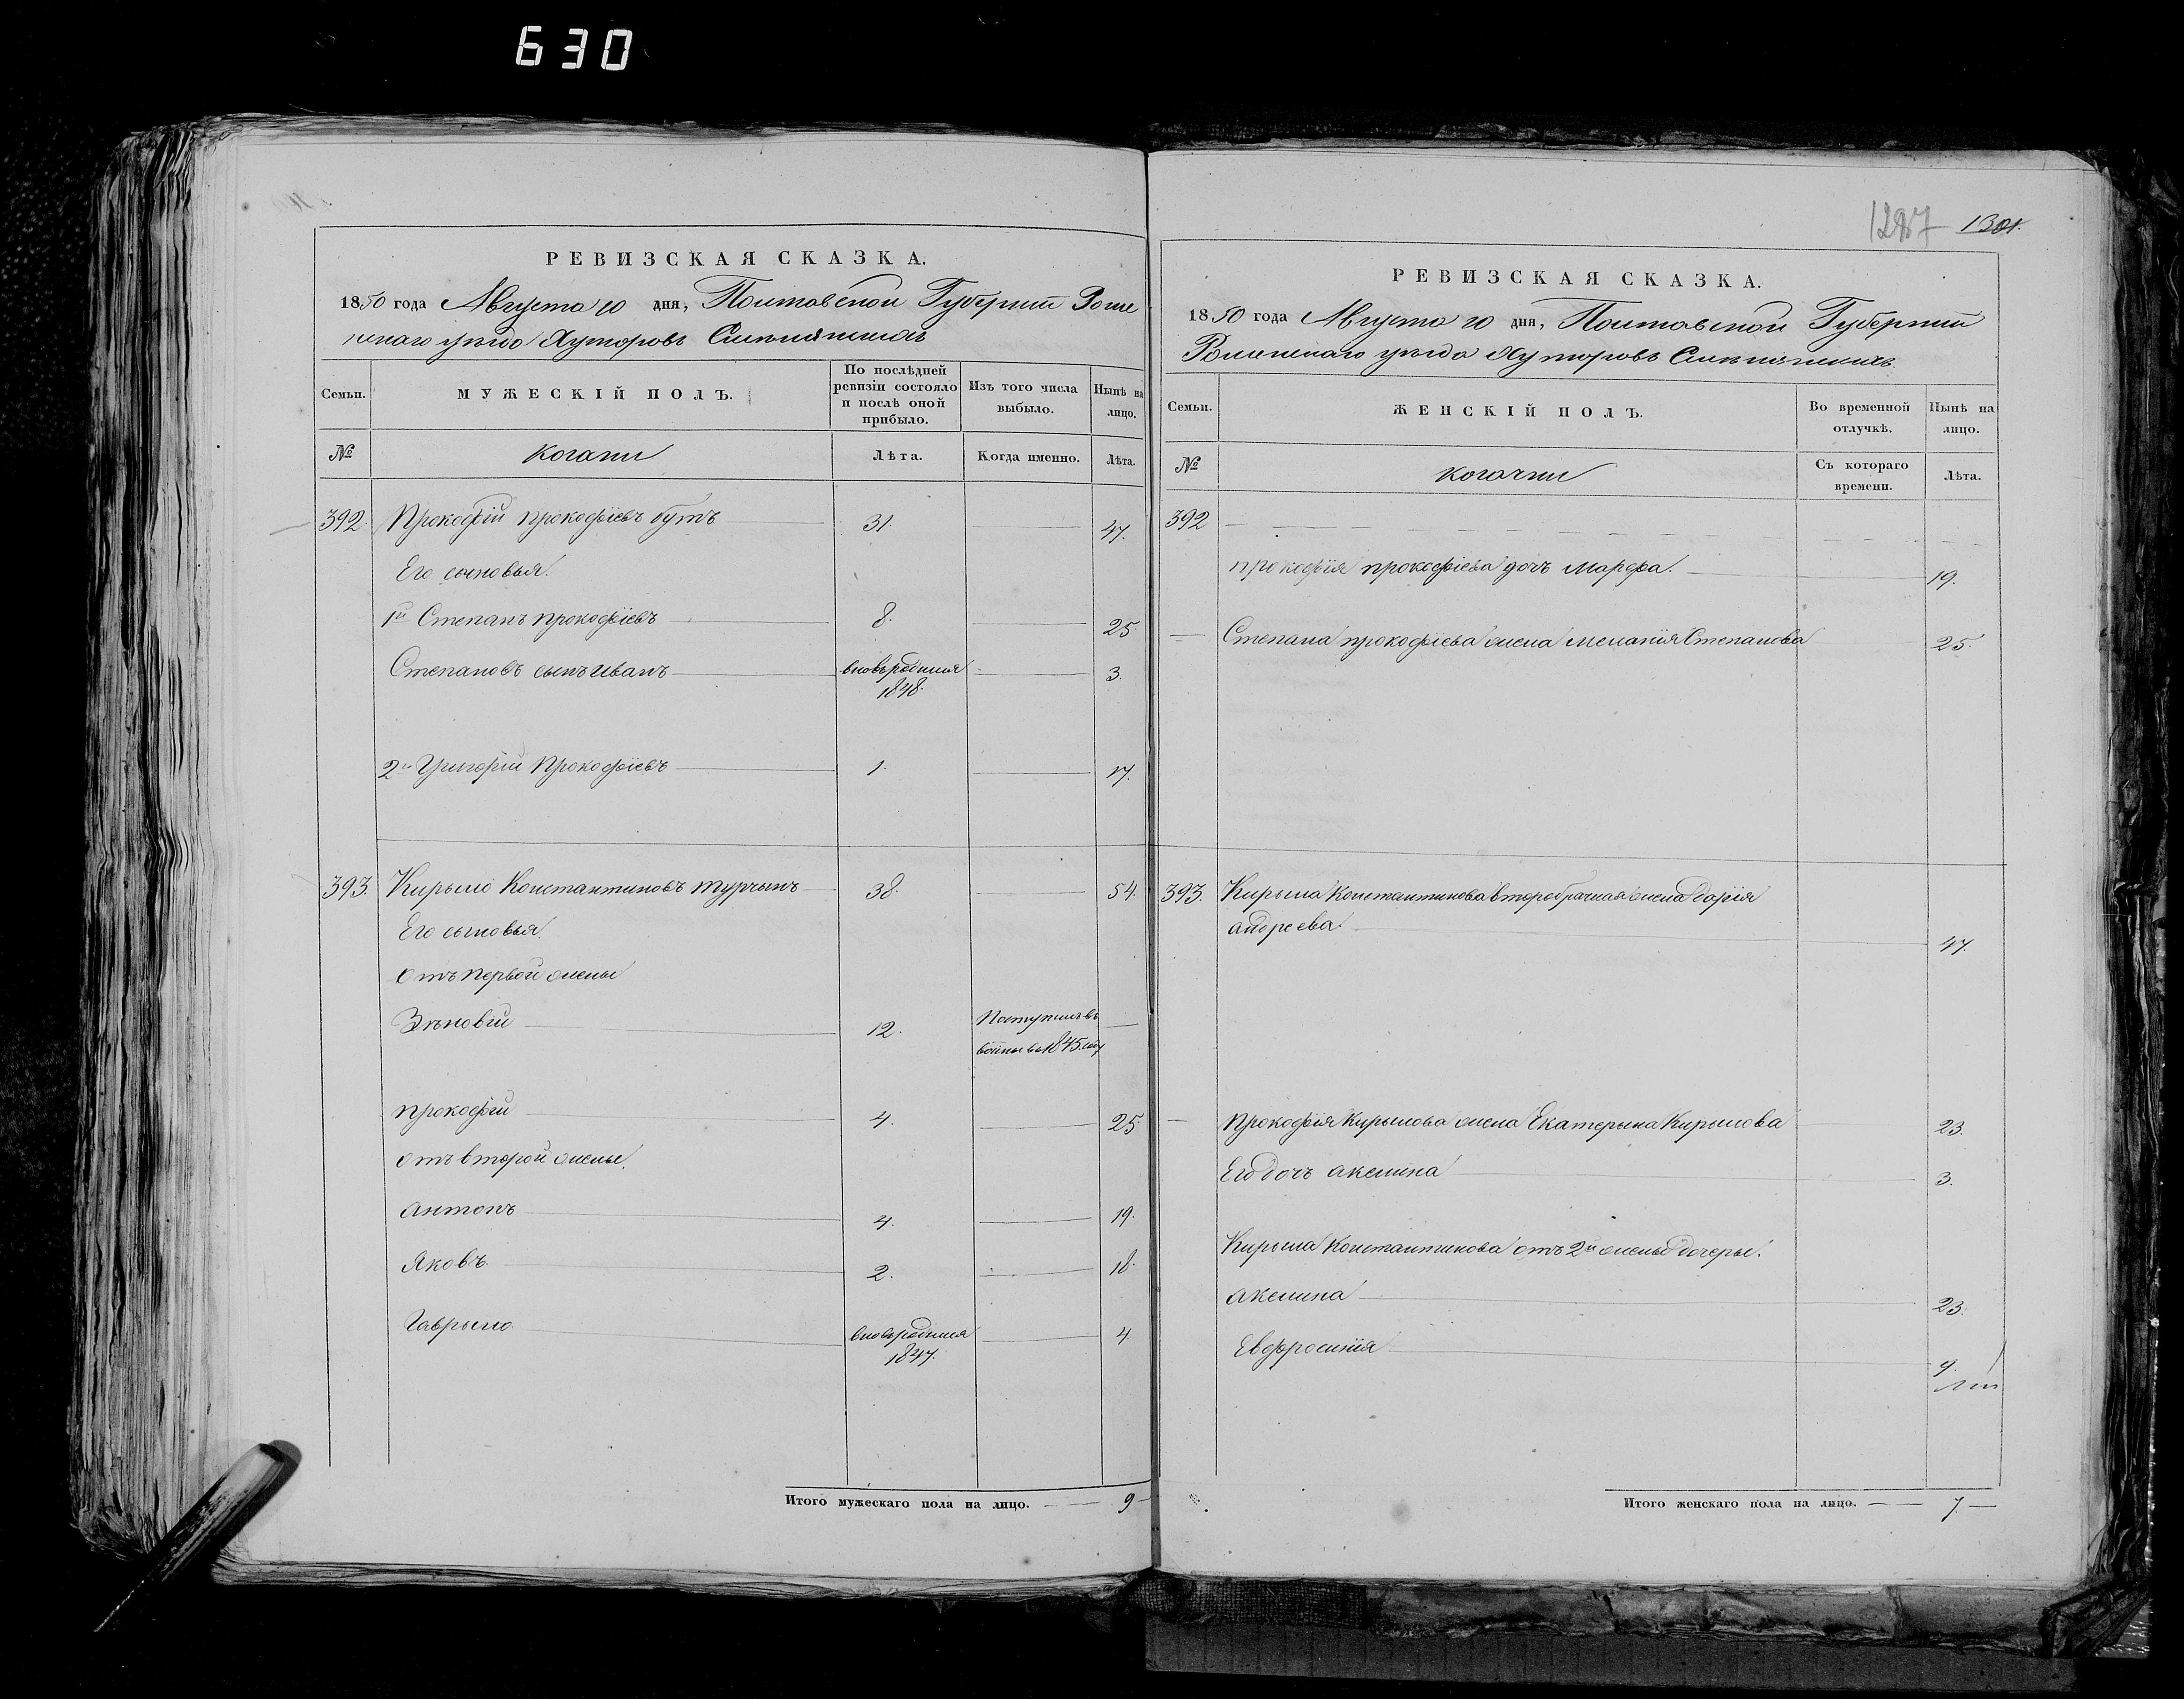 630
РЕВИЗСКАЯ СКАЗКА.
1850 года Августа 10 дня, Полтавской Губернии Роме
нскаго уѣзда Хуторовъ
Семьи.
МУЖЕСКІЙ ПОЛЪ.
По послѣдней ревизіи состояло и послѣ оной прибыло.
Изъ того числа выбыло.
Нынѣ на лицо.
№
козаки
Лѣта.
Когда именно.
Лѣта.
392. Прокофій Прокофіевъ бутъ 31. 47.
Его сыновья.
1й Степанъ прокофіевъ 8. 25.
Степановъ сынъ Иванъ вновьрод 1848. 3.
2й Григорій Прокофіевъ 1. 17.
393. Кирыло Константиновъ турчынъ 38. 54.
Его сыновья.
отъ первой жены
Зѣновій 12. Поступилъ въ
1845 году
прокофій 4. 25
отъ второй жены.
антонъ 4. 19.
Яковъ 2. 18.
Гаврыло вновьрод 1847. 4.
Итого мужескаго пола на лицо. 9
1287 1301.
РЕВИЗСКАЯ СКАЗКА.
1850 года Августа 10 дня, Полтавской Губернии
Роменскаго уѣзда Хуторовъ
Семьи.
ЖЕНСКІЙ ПОЛЪ.
Во временной отлучкѣ.
Нынѣ на лицо.
№
козачки
Съ котораго времени.
Лѣта.
392
прокофія прокофіева дочь Марфа. 19.
Степана прокофіева жена меланія Степанова 25.
393. Кирыла Константинова второбрачная жена дарія
андреева 47.
Прокофія Кирылова жена Екатерына Кирылова 23.
Его дочь акелина 3.
Кирыла Константинова отъ 2й жены дочеры.
акелина 23.
Евфросинія 9.
Итого женскаго пола на лицо. 7